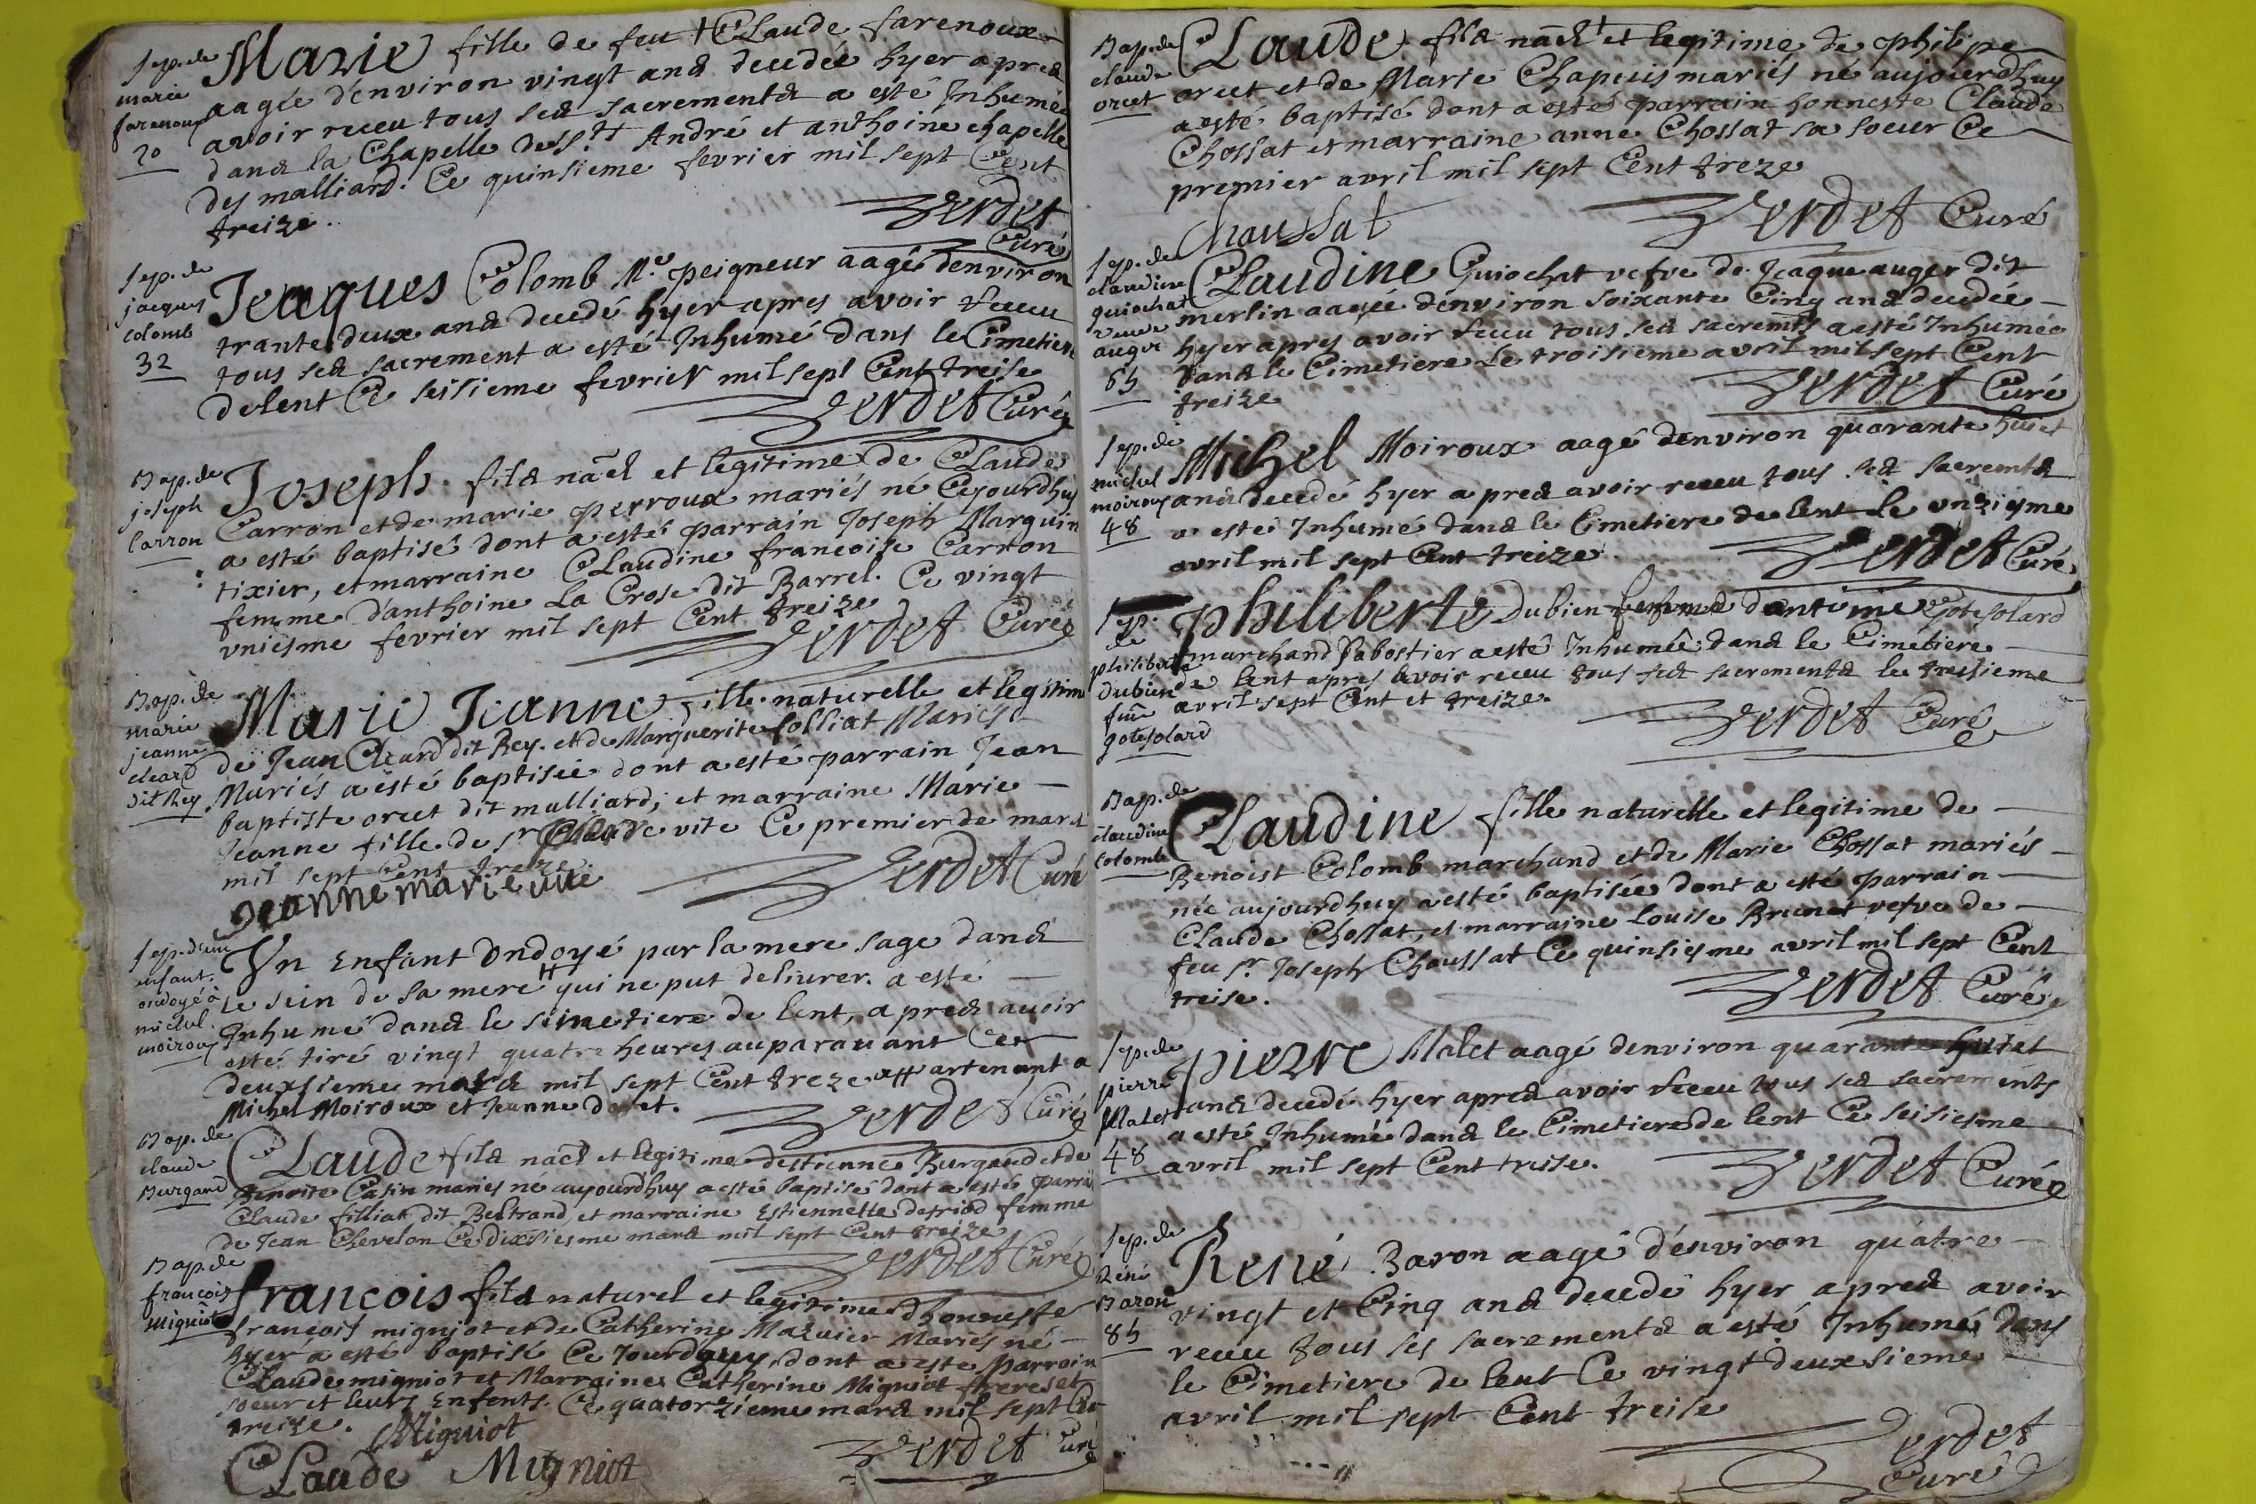 Sep. de
marie
farenoux
20
Marie fille de feu Claude farenoux
aagée d'environ vingt ans decedée hyer apres
avoir receu tous ses sacrements a esté Inhumée
dans la Chapelle des Sts André et anthoine chapelle
des malliard. Ce quinsieme fevrier mil sept Cent
treize.
Verdet
Curé
Sep. de
jacques
colomb
32
Jeaques Colomb Me peigneur aagé denviron
trante deux ans decedé hyer apres avoir receu
tous ses sacrement a esté Inhumé dans le Cimetiere
delent Ce seisieme fevrier mil sept Cent treise
Verdet Curé
Bap. de
joseph
Carron
Joseph fils nael et legitime de Claude
Carron et de marie perroux mariés né Cejourdhuy
a esté baptisé dont a esté parrain Joseph Marguin
tixier, et marraine Claudine francoise Carron
femme d'anthoine La Crose dit Barrel. Ce vingt
vniesme fevrier mil sept Cent treize
Verdet Curé
Bap. de
marie
jeanne
cleard
dit Rey
Marie Jeanne fille naturelle et legitime
de Jean Cleard dit Rey. et de Marguerite folliat Mariés
Mariés a esté baptisée dont a esté parrain Jean
baptiste orcet dit malliard; et marraine Marie
Jeanne fille de sr Claude vite Ce premier de mars
mil sept Cent treize.
Verdet Curé
jeanne marie vite
Sep. d'un
enfant
ondoyé à
michel
moiroux
Vn Enfant Ondoyé par la mere sage dans
le sein de sa mere qui ne put delivrer. a esté
Inhumé dans le simetiere de lent, apres avoir
esté tiré vingt quatre heures auparavant Ce
deuxsieme mars mil sept Cent treze appartenant a
Michel Moiroux et Jeanne doret.
Verdet Curé
Bap. de
claude
Burgand
Claude fils nael et legitime destienne Burgand et de
Catin mariés ne aujourdhuy a esté baptisé dont a esté parrain
Claude filliat dit Bertrand, et marraine Estiennette depriod femme
de Jean Chevelon Ce dixsiesme mars mil sept Cent treize
Verdet Curé
Bap. de
francois
Migniot
francois fils naturel et legitime d'honneste
francois migniot et de Catherine Mazuier Mariés né
hyer a esté baptisé Ce Jourdhuy, dont a esté Parrain
Claude migniot et Marraine Catherine Migniot freres et
soeur et leurs Enfents. Ce quatorzieme mars mil sept Cent
treize.
Migniot
Claude Migniot
Verdet Curé
Bap. de
claude
orcet
Claude fils nael et legitime de philipe
orcet et de Marie Chapuis mariés né aujourdhuy
a esté baptisé dont a esté parrain honneste Claude
Chossat et marraine anne Chossat sa soeur Ce
premier avril mil sept Cent treze
Verdet Curé
Chaussat
Sep. de
claudine
guiochat
veuve
auger
65
Claudine Guiochat vefve de Jeaque auger dit
merlin aagée d'environ soixante Cinq ans decedée
hyer apres avoir receu tous ses sacremts a esté Inhumée
dans le Cimetiere le troisieme avril mil sept Cent
treize
Verdet Curé
Sep. de
michel
moiroux
48
Michel Moiroux aagé denviron quarante huict
ans decedé hyer apres avoir receu tous ses sacremts
a esté Inhumé dans le Cimetiere de lent le vnziesme
avril mil sept Cent treize
Verdet Curé
Sep.
de
philiberte
Dubien
fme
gotesolard
philiberte Dubien femme dantoine Gotesolard
marchand a esté Inhumée dans le Cimetiere
de lent apres avoir receu tous ses sacrements le tresieme
avril sept Cent et treize.
Verdet Curé
Bap. de
claudine
Colomb
Claudine fille naturelle et legitime de
Benoist Colomb marchand et de Marie Chossat mariés
née aujourdhuy a esté baptisée dont a esté parrain
Claude Chossat, et marraine Louise Brunet vefve de
feu sr. Joseph Chaussat Ce quinsiesme avril mil sept Cent
treise.
Verdet Curé
Sep. de
pierre
Malet
48
pierre Malet aagé denviron quarante huict
ans decedé hyer apres avoir receu tous ses sacrements
a esté Inhumé dans le Cimetiere de lent Ce seisiesme
avril mil sept Cent treise.
Verdet Curé
Sep. de
Réné
Baron
85
René Baron aagé d'environ quatre
vingt et Cinq ans decedé hyer apres avoir
receu tous ses sacrements a esté Inhumé dans
le Cimetiere de lent Ce vingt deuxsieme
avril mil sept Cent treise
Verdet
Curé